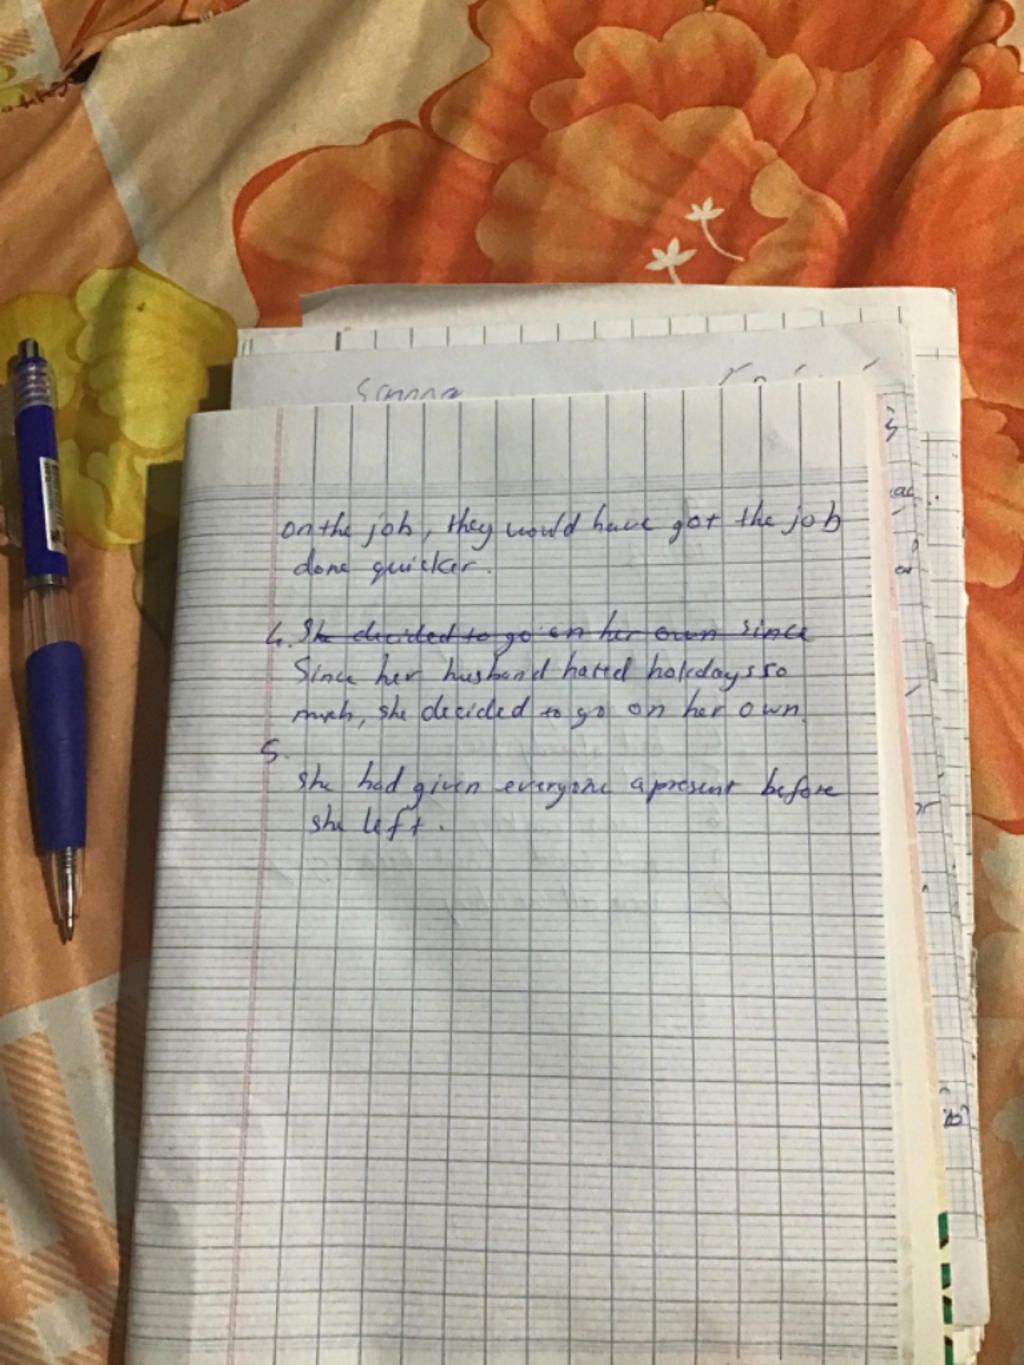 on the job, they would have got the job
done quicker.
4. She decided to go on her own since
Since her husband hated holidays so
much, she decided to go on her own.
5.
She had given everyone a present before
she left.